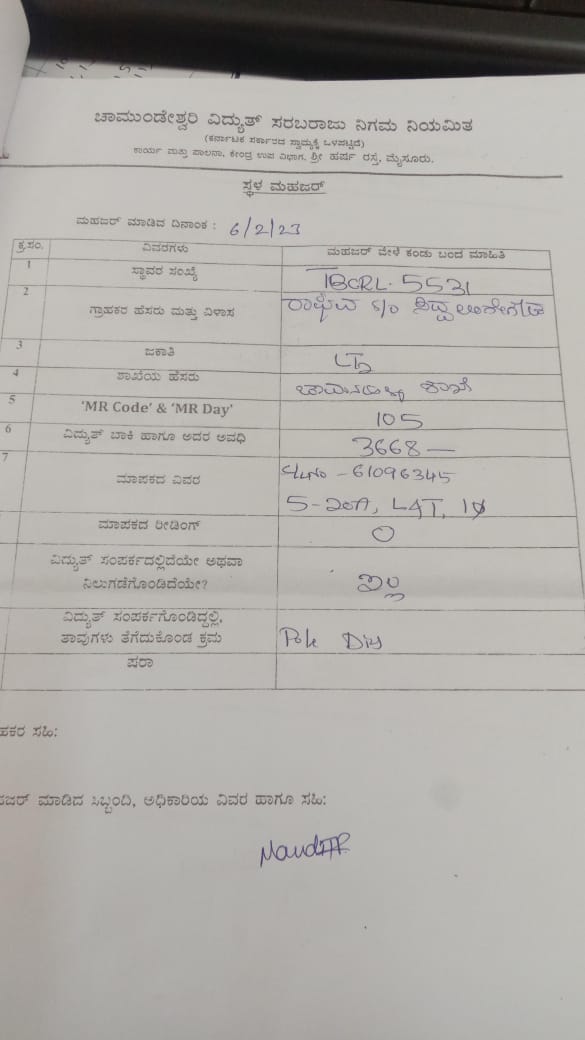 ಚಾಮುಂಡೇಶ್ವರಿ ವಿದ್ಯುತ್ ಸರಬರಾಜು ನಿಗಮ ನಿಯಮಿತ
(ಕರ್ನಾಟಕ ಸರ್ಕಾರದ ಸ್ವಾಮ್ಯಕ್ಕೆ ಒಳಪಟ್ಟಿದೆ)
ಕಾರ್ಯ ಮತ್ತು ಪಾಲನಾ, ಕೇಂದ್ರ ಉಪ ವಿಭಾಗ, ಶ್ರೀ ಹರ್ಷ ರಸ್ತೆ, ಮೈಸೂರು.
ಸ್ಥಳ ಮಹಜರ್
ಮಹಜರ್ ಮಾಡಿದ ದಿನಾಂಕ : 6/2/23
ಕ್ರ.ಸಂ. ವಿವರಗಳು ಮಹಜರ್ ವೇಳೆ ಕಂಡು ಬಂದ ಮಾಹಿತಿ
1 ಸ್ಥಾವರ ಸಂಖ್ಯೆ 5531
2 ಗ್ರಾಹಕರ ಹೆಸರು ಮತ್ತು ವಿಳಾಸ s/o
3 ಜಕಾತಿ
4 ಶಾಖೆಯ ಹೆಸರು ಶಾಖೆ
5 'MR Code' & 'MR Day' 105
6 ವಿದ್ಯುತ್ ಬಾಕಿ ಹಾಗೂ ಅದರ ಅವಧಿ 3668 —
7 ಮಾಪಕದ ವಿವರ - 61096345
5-20A, L&T, 1φ
ಮಾಪಕದ ರೀಡಿಂಗ್ 0
ವಿದ್ಯುತ್ ಸಂಪರ್ಕದಲ್ಲಿದೆಯೇ ಅಥವಾ
ನಿಲುಗಡೆಗೊಂಡಿದೆಯೇ? ಇಲ್ಲ
ವಿದ್ಯುತ್ ಸಂಪರ್ಕಗೊಂಡಿದ್ದಲ್ಲಿ,
ತಾವುಗಳು ತೆಗೆದುಕೊಂಡ ಕ್ರಮ Pole Dis
ಷರಾ
ಹಕರ ಸಹಿ:
ಹಜರ್ ಮಾಡಿದ ಸಿಬ್ಬಂದಿ, ಅಧಿಕಾರಿಯ ವಿವರ ಹಾಗೂ ಸಹಿ: